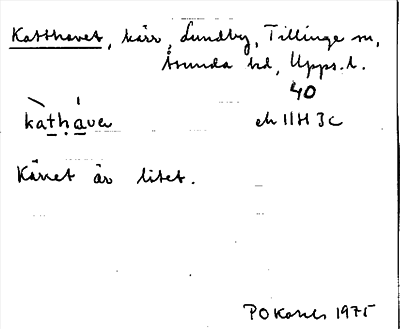 Katthavet, kärr, Lundby, Tillinge sn,
Åsunda hd, Upps. l.
40
kathave
ek 11H 3c
Kärret är litet.
1975